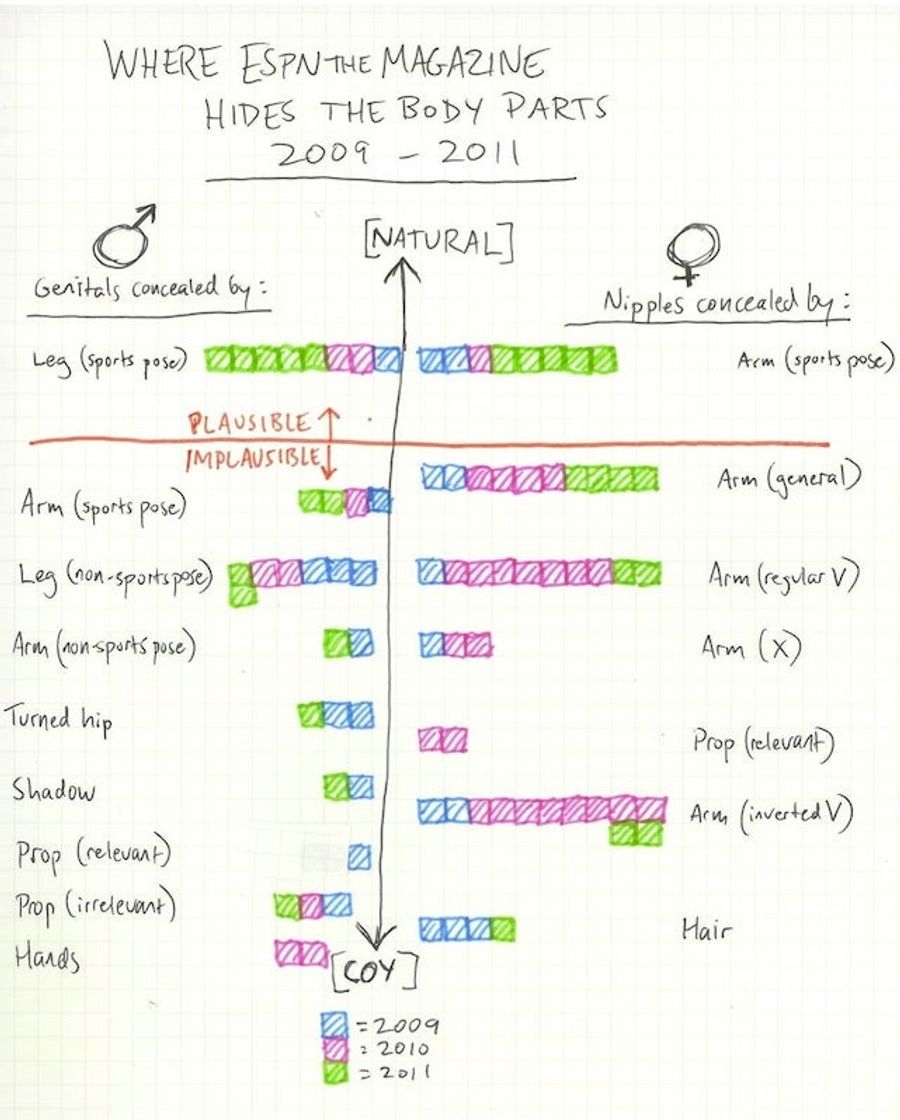 WHERE ESPN THE MAGAZINE
HIDES THE BODY PARTS
2009 - 2011
[NATURAL]
Genitals concealed by:
Nipples concealed by:
Leg (sports pose)
Arm (sports pose)
PLAUSIBLE
IMPLAUSIBLE
Arm (general)
Arm (sports pose)
Leg (non-sports pose)
Arm (regular V)
Arm (non-sports pose)
Arm (X)
Turned hip
Prop (relevant)
Shadow
Arm (inverted V)
Prop (relevant)
Prop (irrelevant)
Hair
Hands
[COY]
= 2009
= 2010
= 2011